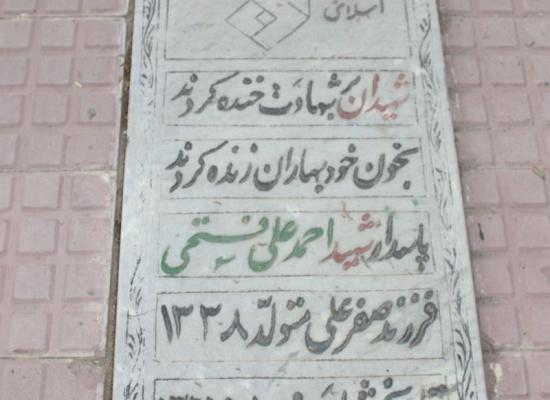 اسلامی
شهیدان بر شهادت خنده کردند
بخون خود بهاران زنده کردند
پاسدار شهید احمد علی
فرزند صفر علی متولد ۱۳۳۸